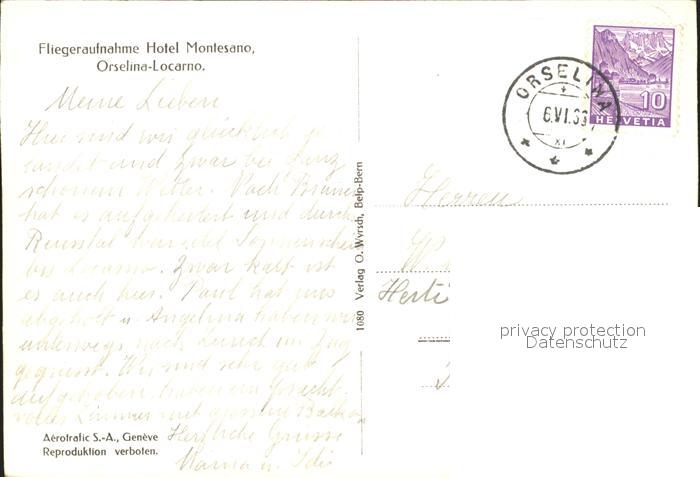 Fliegeraufnahme Hotel Montesano,
Orselina-Locarno.
Meine Lieben
Hier sind wir glücklich ge
landet und zwar bei ganz
schönem Wetter. Nach Brunnen
hat es aufgeheitert und durchs
Reusstal war
bis Locarno. Zwar kalt ist
es auch hier. Paul hat uns
abgeholt u. Angelina haben wir
unterwegs nach Zürich im Zug
gegrüsst. Wir sind sehr gut
aufgehoben, haben ein
volles Zimmer mit grossem Balkon
Herzliche Grüsse
Mama u. Idi
Aérotrafic S.-A., Genève
Reproduktion verboten.
1080 Verlag O. Wyrsch, Belp-Bern
ORSELINA
6.VI.36
XI
10
HELVETIA
Herren
W
Herti
privacy protection
Datenschutz